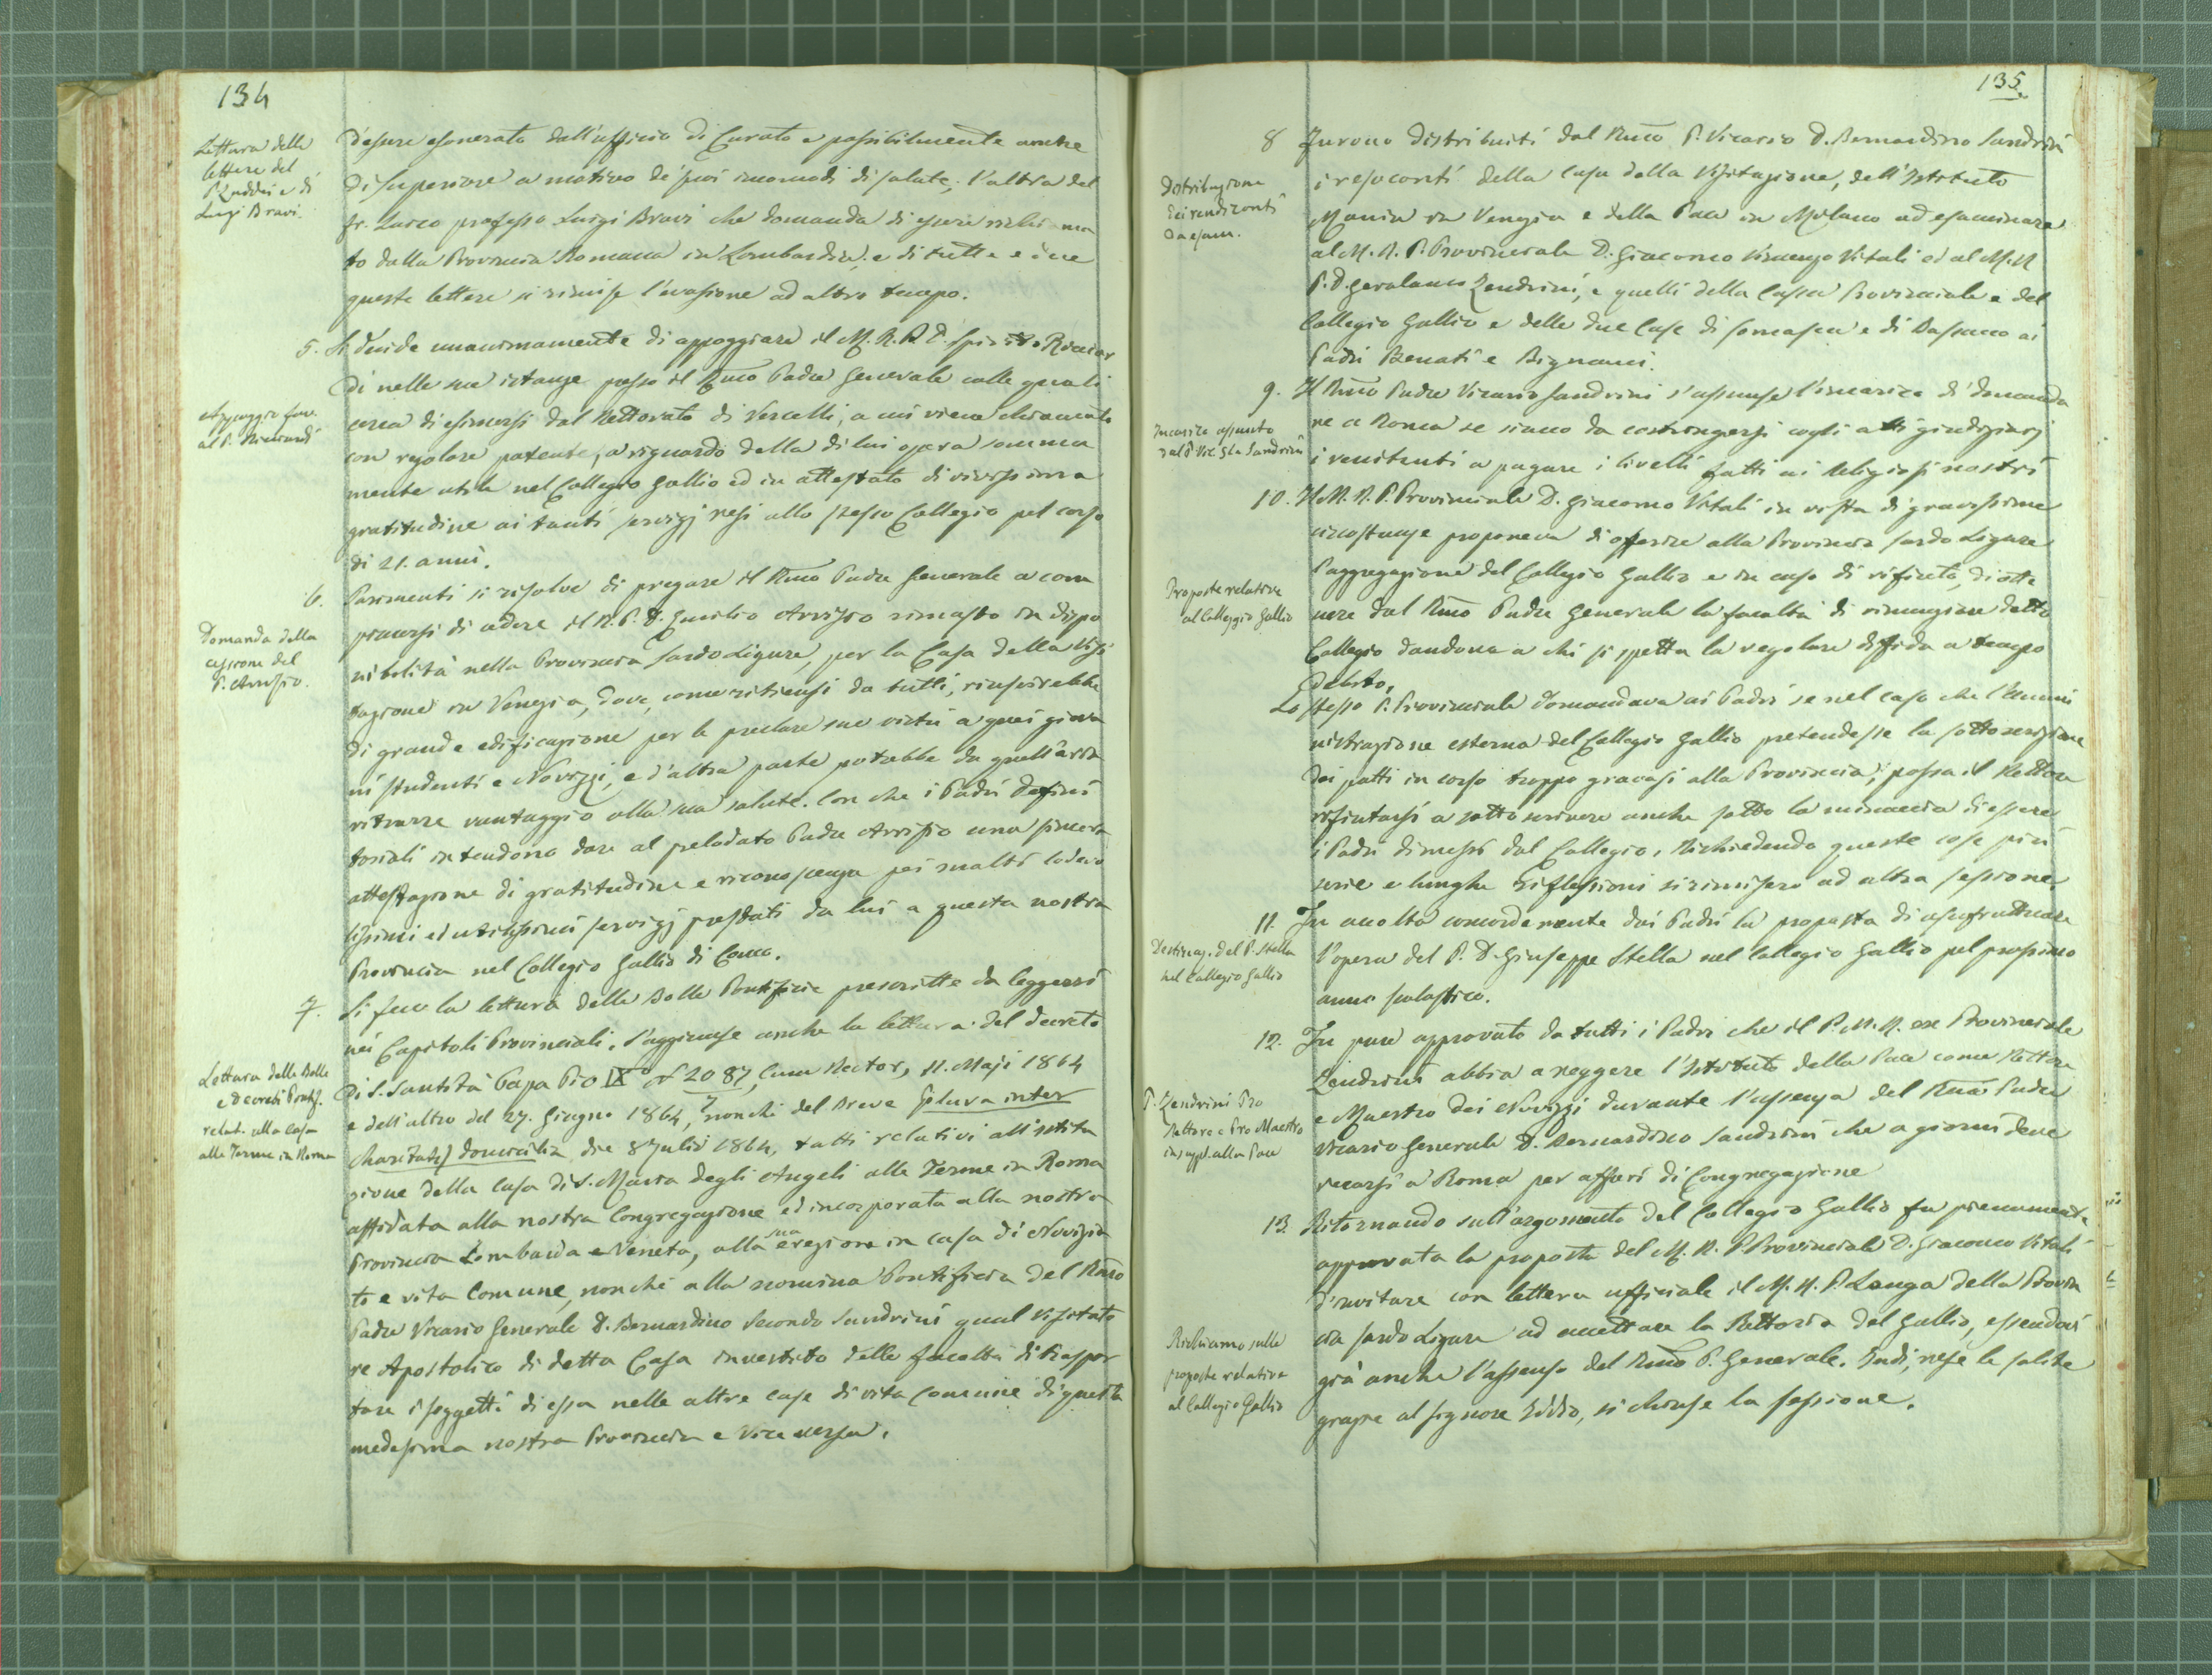 134
Lettura delle
lettere del
P. Zaddei e di
Luigi Bravi.
d'essere esonerato dall'ufficio di Curato e possibilmente anche
di Superiore a motivo de' suoi incomodi di salute; l'altra del
fr. Laico professo Luigi Bravi che domanda di essere richiama
to dalla Provincia Romana in Lombardia; e di tutte e due
queste lettere si rimise l'evasione ad altro tempo.
5. Si decide unanimamente di appoggiare il M. R. P. D. Spirito Ricciar
di nelle sue istanze presso il Rmo Padre Generale colle quali
Appoggio fav.
al P. Ricciardi
cerca di esimersi dal Rettorato di Vercelli, a cui viene chiamato
con regolare patente, a riguardo della di lui opera somma
mente utile nel Collegio Gallio ed in attestato di vivissima
gratitudine ai tanti servigj resi allo stesso Collegio pel corso
di 21. anni.
6. Parimenti si risolve di pregare il Rmo Padre Generale a com
piacersi di cedere il R. P. D. Emilio Arrisio rimasto in dispo
Domanda della
cessione del
P. Arrisio.
nibilità nella Provincia Sardo Ligure, per la Casa della Visi
tazione in Venezia, dove, come ritiensi da tutti, riuscirebbe
di grande edificazione per le preclare sue virtù a quei giova
ni studenti e Novizzi, e d'altra parte potrebbe da quell'aria
ritrarre vantaggio alla sua salute. Con che i Padri Defini
toriali intendono dare al prelodato Padre Arrisio una sincera
attestazione di gratitudine e riconoscenza pei molti lodevo
lissimi ed utilissimi servigj prestati da lui a questa nostra
Provincia nel Collegio Gallio di Como.
7. Si fece la lettura delle Bolle Pontificie prescritte da leggersi
nei Capitoli Provinciali. S'aggiunse anche la lettura del decreto
Lettura delle Bolle
e Decreti Pontif.
relat. alla Casa
alle Terme in Roma
di S. Santità Papa Pio IX N 2087, Cum Rector, 11. Maji 1864
e dell'altro del 27. Giugno 1864, nonchè del Breve Plura inter
Charitatis domicilia die 8 Julii 1864, tutti relativi all'istitu
zione della Casa di S. Maria degli Angeli alle Terme in Roma
affidata alla nostra Congregazione ed incorporata alla nostra
Provincia Lombarda e Veneta, alla sua erezione in casa di Novizia
to e vita Comune, nonchè alla nomina Pontificia del Rmo
Padre Vicario Generale D. Bernardino Secondo Sandrini qual Visitato
re Apostolico di detta Casa investito delle facoltà di traspor
tare i soggetti di essa nelle altre case di vita comune di questa
medesima nostra Provincia e Vice versa.
135
8 Furono distribuiti dal Rmo P. Vicario D. Bernardino Sandrini
Distribuzione
dei rendiconti
da esam.
i resoconti della Casa della Visitazione, dell'Istituto
Manin in Venezia e della Pace in Milano ad esaminare
al M. R. P. Provinciale D. Giacomo Vincenzo Vitali ed al M. R
P. D. Gerolamo Zendrini, e quelli della Cassa Provinciale e del
Collegio Gallio e delle due Case di Somasca e di Bassano ai
Padri Benati e Bignami.
9. Il Rmo Padre Vicario Sandrini s'assunse l'incarico di domanda
Incarico assunto
dal P. Vic. Gle Sandrini
re a Roma se siano da costringersi cogli atti giudiziarj
i renitenti a pagare i livelli fatti ai Religiosi nostri
10. Il M. R. P. Provinciale D. Giacomo Vitali in vista di gravissime
circostanze proponeva di offerire alla Provincia Sardo Ligure
Proposte relative
al Collegio Gallio
l'aggregazione del Collegio Gallio e in caso di rifiuto, di otte
nere dal Rmo Padre Generale la facoltà di rinunziare detto
Collegio dandone a chi si spetta la regolare diffida a tempo
debito.
Lo stesso P. Provinciale domandava ai Padri se nel caso che l'Ammi
nistrazione esterna del Collegio Gallio pretendesse la sottoscrizione
dei patti in corso troppo gravosi alla Provincia, possa il Rettore
rifiutarsi a sottoscrivere anche sotto la minaccia di essere
i Padri dimessi dal Collegio. Richiedendo queste cose più
serie e lunghe riflessioni si rimisero ad altra sessione.
11. Fu accolta concordemente dai Padri la proposta di usufruttuare
Destinaz. del P. Stella
nel Collegio Gallio
l'opera del P. D. Giuseppe Stella nel Collegio Gallio pel prossimo
anno scolastico.
12. Fu pure approvato da tutti i Padri che il P. M. R. exe Provinciale
Zendrini abbia a reggere l'Istituto della Pace come Rettore
P. Zendrini Pro
Rettore e Pro Maestro
in suppl. alla Pace
e Maestro dei Novizzi durante l'assenza del Rmo Padre
Vicario Generale D. Bernardino Sandrini che a giorni deve
recarsi a Roma per affari di Congregazione
13. Ritornando sull'argomento del Collegio Gallio fu pienamente
approvata la proposta del M. R. P. Provinciale D. Giacomo Vitali
d'invitare con lettera ufficiale il M. R. P. Longa della Provin
Richiamo sulle
proposte relative
al Collegio Gallio
cia Sardo Ligure ad accettare la Rettoria del Gallio, essendovi
già anche l'assenso del Rmo P. Generale. Indi, rese le solite
grazie al Signore Iddio, si chiuse la sessione.